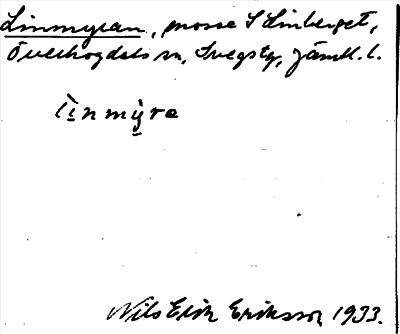 Linmyran, mosse S Linberget,
Överhogdals sn, Svegs tg, Jämtl. l.
l̀ịnmỵ̀re
Nils Erik Eriksson 1933.